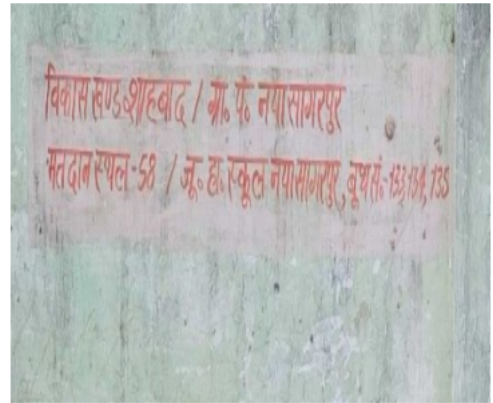 विकास खण्ड-शाहबाद / ग्रा. पं. नयासागरपुर
मतदान स्थल-58 / जू. हा. स्कूल नयासागरपुर, बूथ सं.-133,134,135